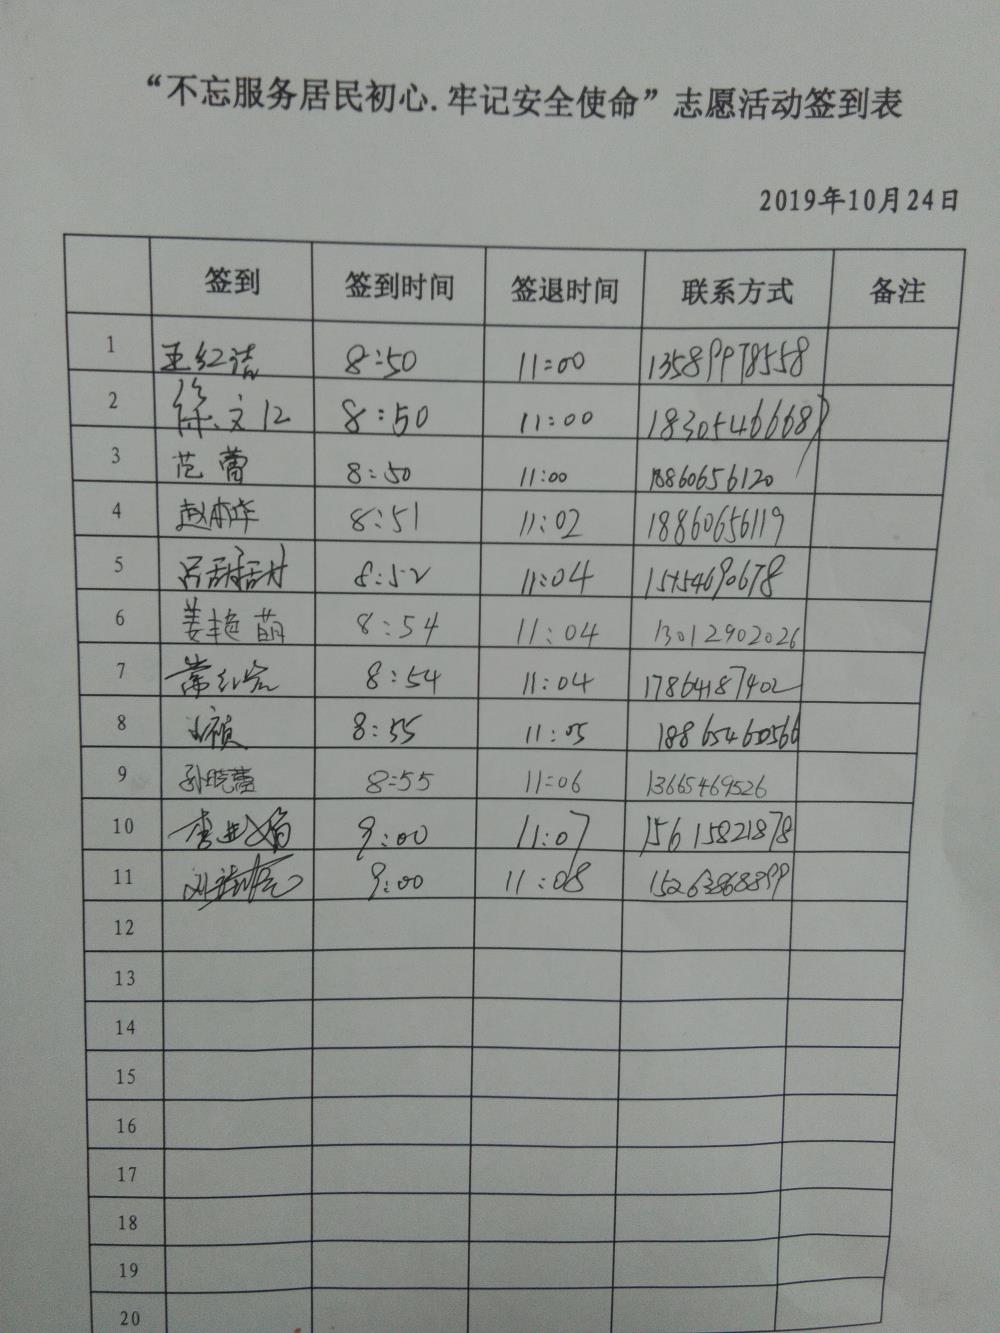 “不忘服务居民初心.牢记安全使命”志愿活动签到表
2019年10月24日
签到 签到时间 签退时间 联系方式 备注
1 王红洁 8:50 11:00 13589978558
2 徐文江 8:50 11:00 18305466687
3 范蕾 8:50 11:00 18860656120
4 赵 8:51 11:02 18860656119
5 吕甜甜 8:52 11:04 15154690678
6 姜艳萌 8:54 11:04 13012902026
7 常红宾 8:54 11:04 17864187402
8 8:55 11:05 18865460566
9 孙晓蕾 8:55 11:06 13665469526
10 李 9:00 11:07 15615821878
11 刘 9:00 11:08 15263868899
12
13
14
15
16
17
18
19
20